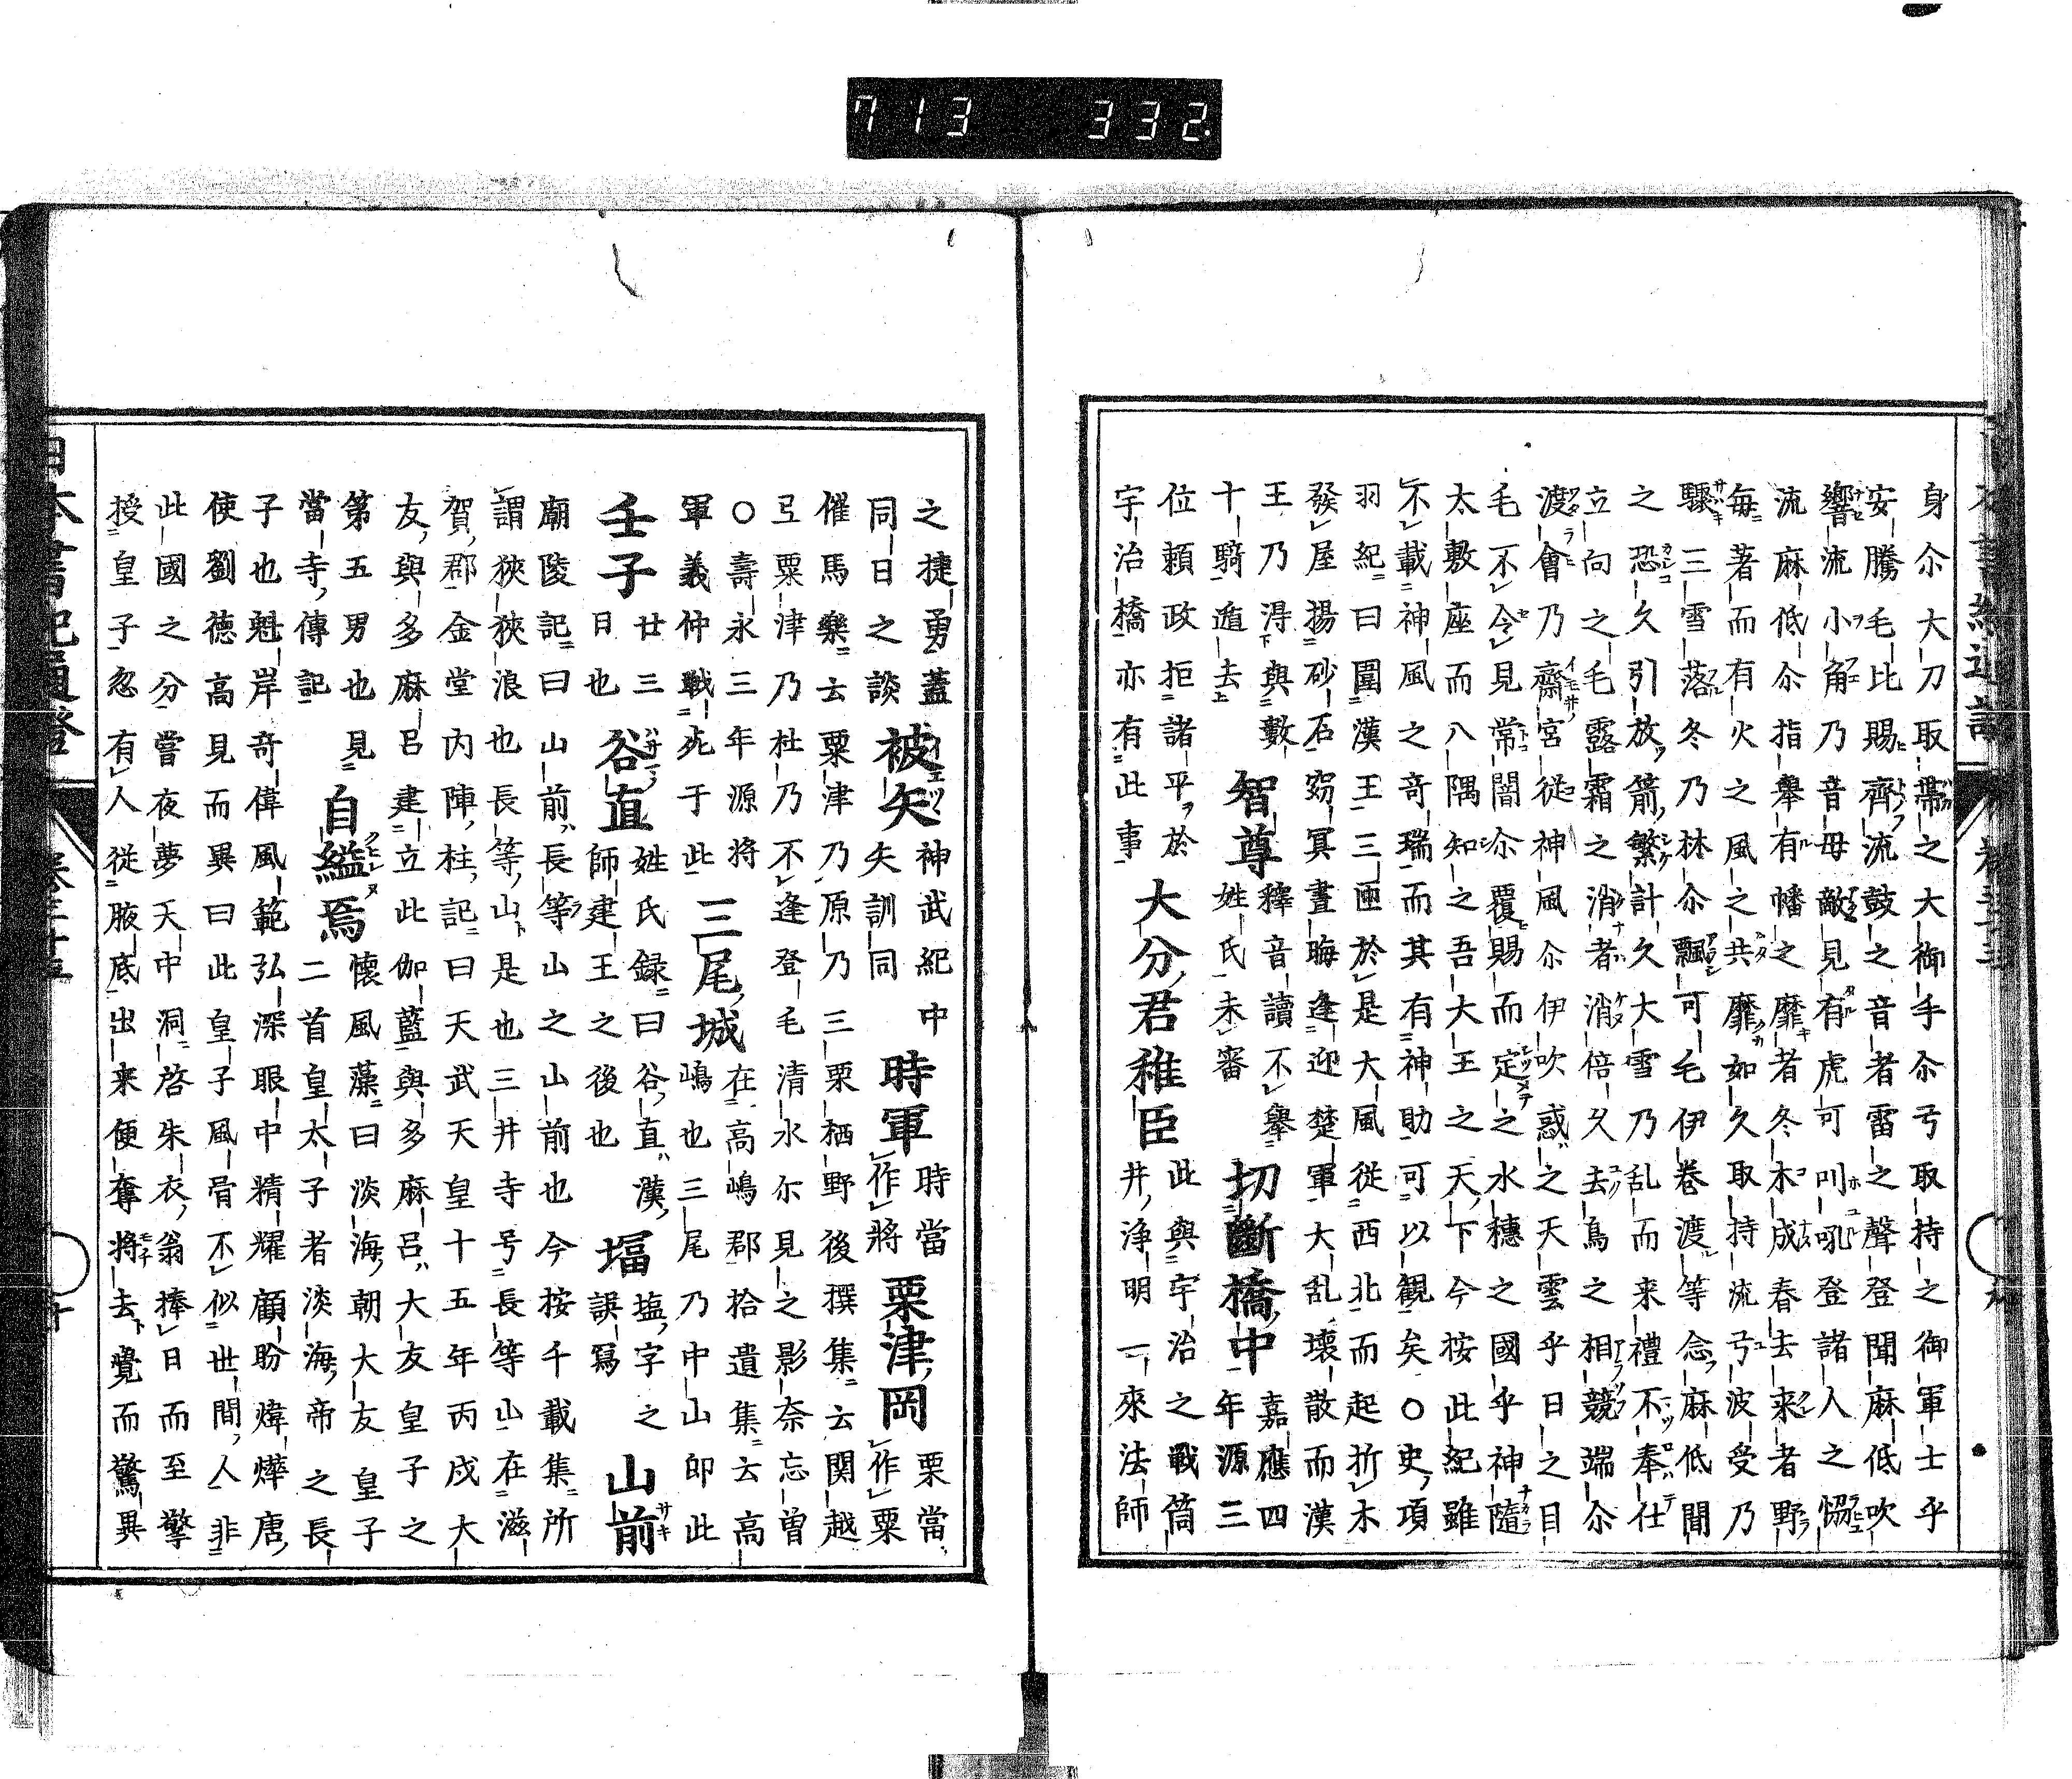 713 332
身尒大刀取帶之大御手尒弓取持之御軍士乎
安騰毛比賜齊流鼓之音者雷之聲登聞麻低吹
響流小角乃音母敵見有虎可叫吼登諸人之恊
流麻低尒指舉有幡之靡者冬木成春去来者野
每著而有火之風之共靡如久取持流弓波受乃
驟三雪落冬乃林尒飄可毛伊卷渡等念麻低聞
之恐久引放箭繁計久大雪乃乱而来禮不奉仕
立向之毛露霜之消者消倍久去鳥之相競端尒
渡會乃齋宮從神風尒伊吹惑之天雲乎日之目
毛不令見常闇尒覆賜而定之水穗之國乎神隨
太敷座而八隅知之吾大王之天下今按此紀雖
不載神風之奇瑞而其有神助可以觀矣○史項
羽紀曰圍漢王三匝於是大風從西北而起折木
發屋揚砂石窈冥晝晦逢迎楚軍大乱壞散而漢
王乃淂與數
十騎遁去
智尊
釋音讀不舉
姓氏未審
切斷橋中
嘉應四
年源三
位賴政拒諸平於
宇治橋亦有此事
大分君稚臣
此與宇治之戰筒
井淨明一來法師
之捷勇蓋
同日之談
被矢
神武紀中
矢訓同
時軍
時當
作將
栗津岡
栗當
作粟
催馬樂云粟津乃原乃三栗栖野後撰集云関越
弖粟津乃杜乃不逢登毛清水尓見之影奈忘曽
○壽永三年源將
軍義仲戰死于此
三尾城
在高嶋郡拾遺集云高
嶋也三尾乃中山卽此
壬子
廿三
日也
谷直
姓氏録曰谷直漢
師建王之後也
塭
塩字之
誤寫
山前
廟陵記曰山前長等山之山前也今按千載集所
謂狹狹浪也長等山是也三井寺号長等山在滋
賀郡金堂内陣柱記曰天武天皇十五年丙戌大
友與多麻呂建立此伽藍與多麻呂大友皇子之
第五男也見
當寺傳記
自縊焉
懷風藻曰淡海朝大友皇子
二首皇太子者淡海帝之長
子也魁岸奇偉風範弘深眼中精耀顧盼煒燁唐
使劉德高見而異曰此皇子風骨不似世間人非
此國之分嘗夜夢天中洞啓朱衣翁捧日而至擎
授皇子忽有人從腋底出来便奪將去覺而驚異